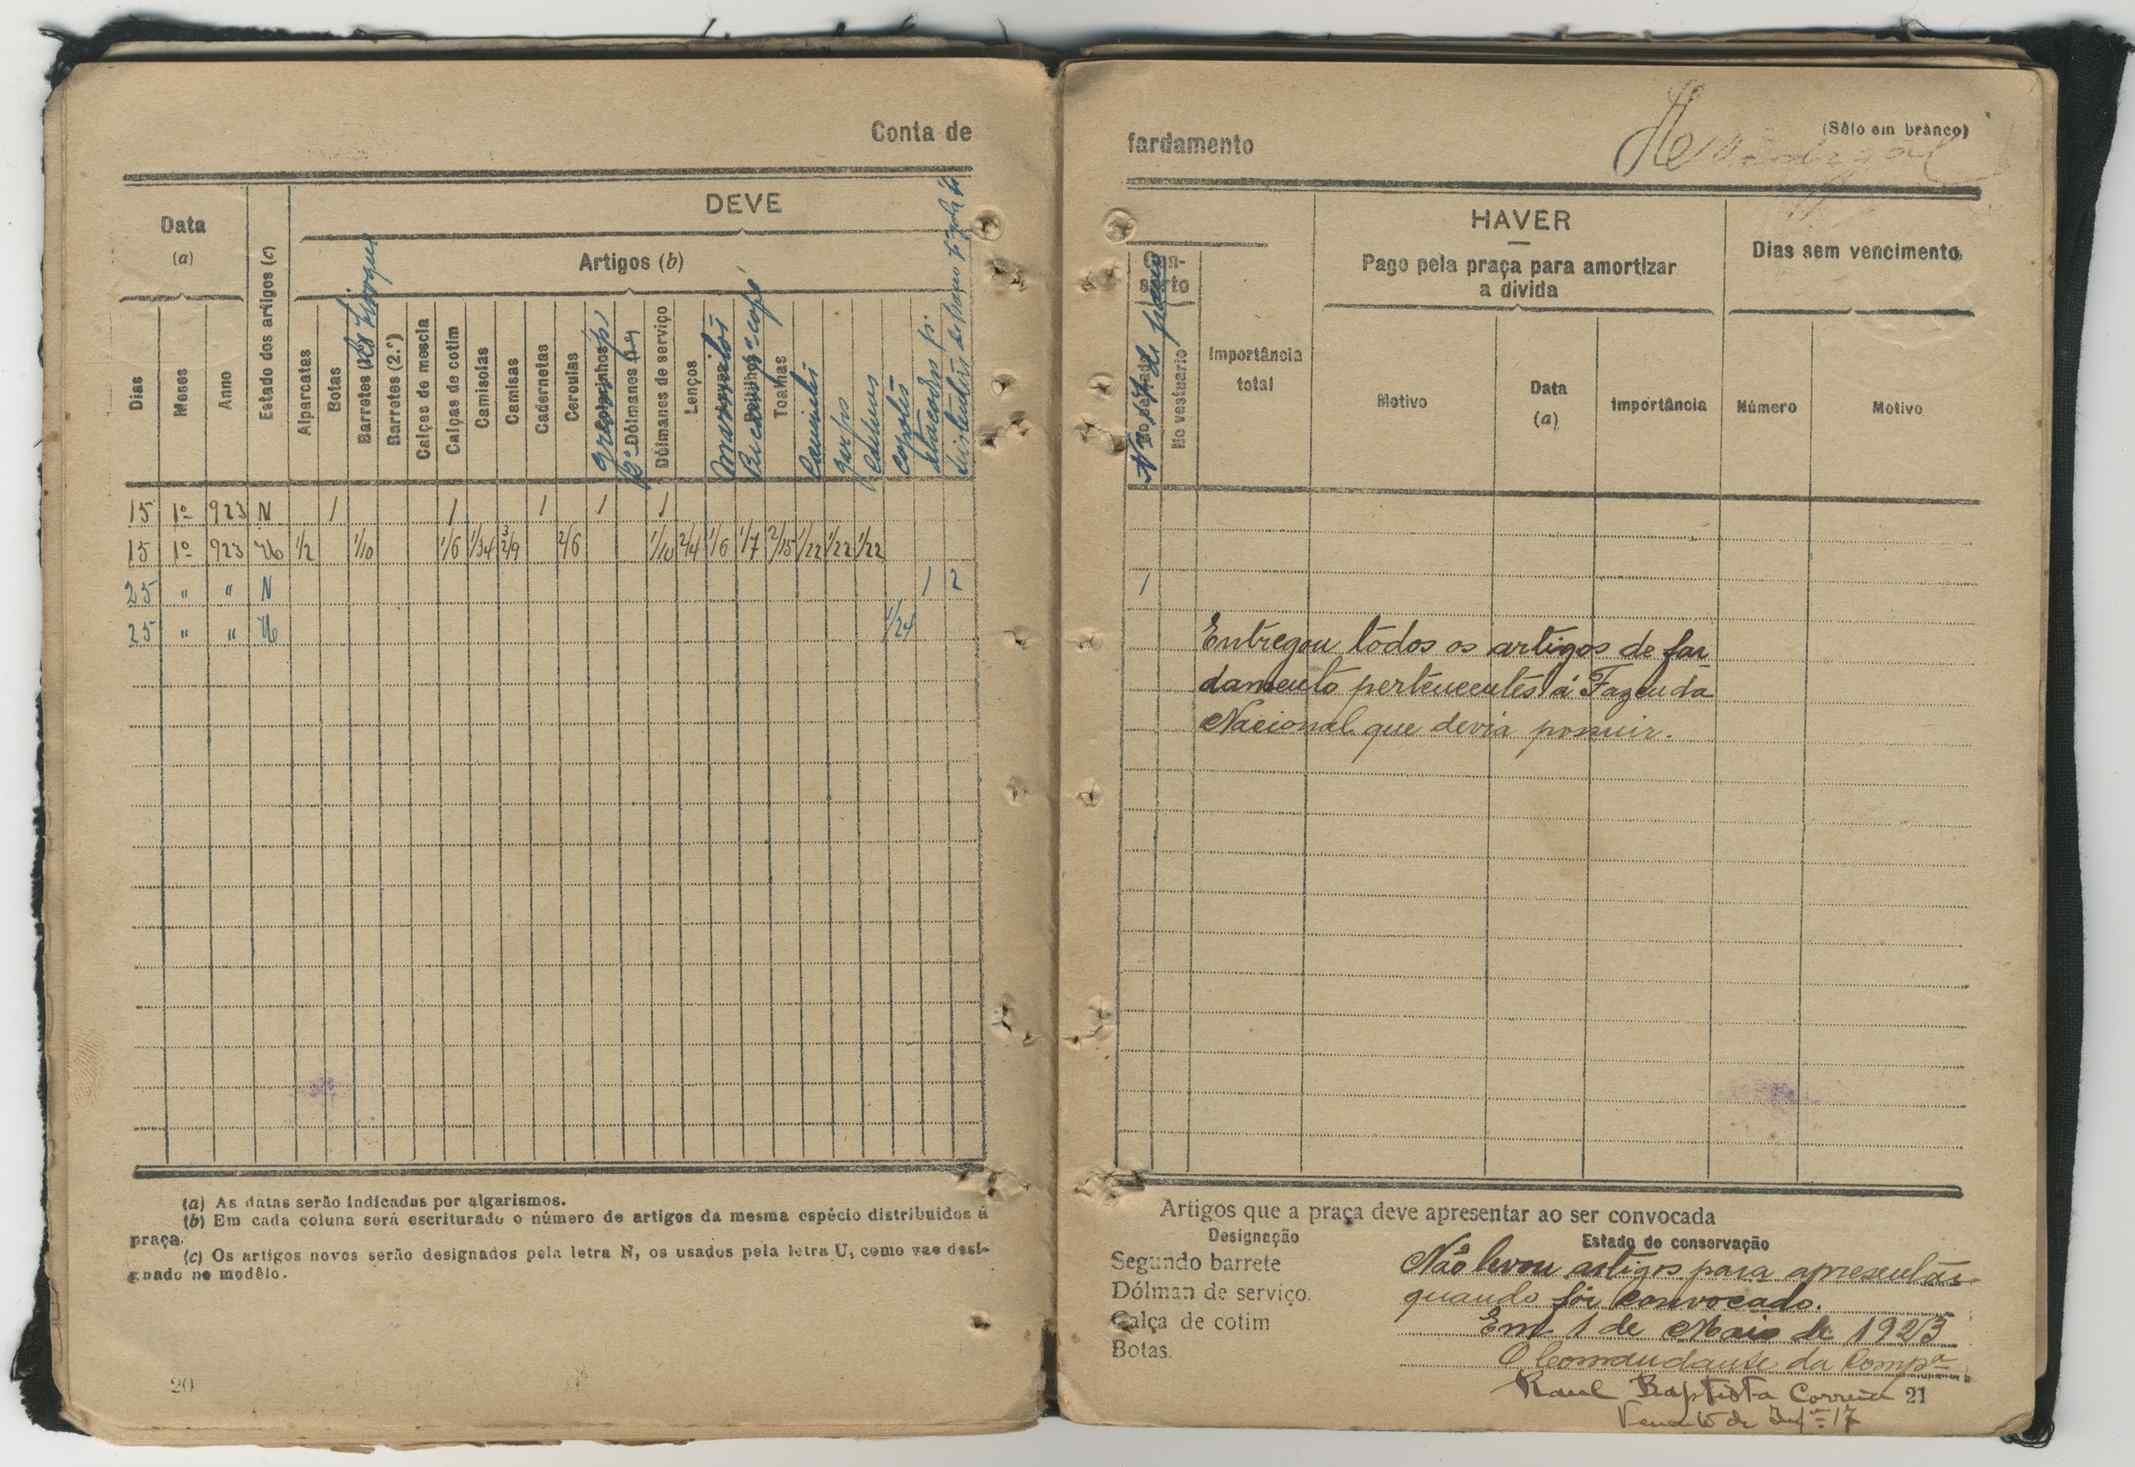 Conta de
DEVE
Data
(a)
Artigos (b)
Dias
Meses
Anno
Estado dos artigos (c)
Alparcatas
Botas
Barretes
Barretes (2.º)
Calças de mescla
Calças de cotim
Camisolas
Camisas
Cadernetas
Ceroulas
Dólmanes
Dólmanes de serviço
Lenços
Marmitas
Toalhas
Cantis
Garfos
Colheres
Capotes
15 1º 923 N 1 1 1 1 1
15 1º 923 U 1/2 1/10 1/6 1/34 3/9 2/6 1/10 2/4 1/6 1/7 2/15 1/22 1/22 1/22
25 " " N 1 2
25 " " U 1/24
(a) As datas serão indicadas por algarismos.
(b) Em cada coluna será escriturado o número de artigos da mesma espécie distribuidos á
praça.
(c) Os artigos novos serão designados pela letra N, os usados pela letra U, como vae desi-
gnado no modêlo.
20
fardamento
(Sêlo em branco)
HAVER
Pago pela praça para amortizar
a divida
Dias sem vencimento
Con-
serto
No vestuário
Importância
total
Motivo
Data
(a)
Importância
Número
Motivo
1
Entregou todos os artigos de far
damento pertencentes á Fazenda
Nacional que devia possuir.
Artigos que a praça deve apresentar ao ser convocada
Designação
Estado de conservação
Segundo barrete
Dólman de serviço.
Calça de cotim
Botas.
Não levou artigos para apresentar
quando fôr convocado.
Em 1 de Maio de 1923
O Comandante da Compª
Raul Baptista Correia
21